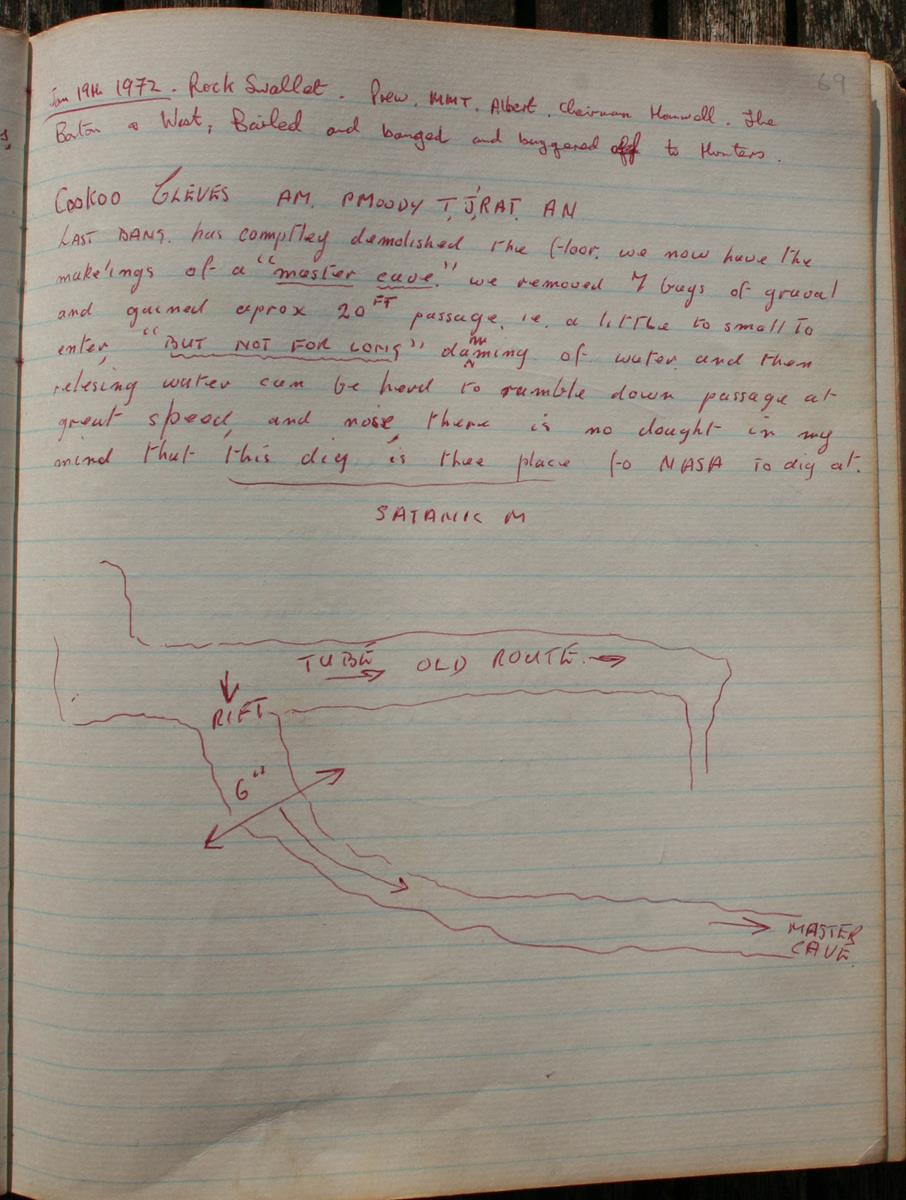 69
Jan 19th 1972. Rock Swallet. Prew, MMT, Albert, Chairman Hanwell. The
Barton & West, Bailed and banged and buggered off to Hunters.
Cookoo CLEVES AM. PMOODY T, J, RAT. AN
LAST BANG. has compltley demolished the floor. we now have the
make'ings of a "master cave." we removed 7 bags of graval
and gained aprox 20FT passage. i.e. a little to small to
enter, "BUT NOT FOR LONG" damming of water and then
relesing water can be herd to rumble down passage at
great speed, and nose, there is no dought in my
mind that this dig is thee place fo MASA To dig at.
SATANIC M
TUBE OLD ROUTE
RIFT
6"
MASTER
CAVE.